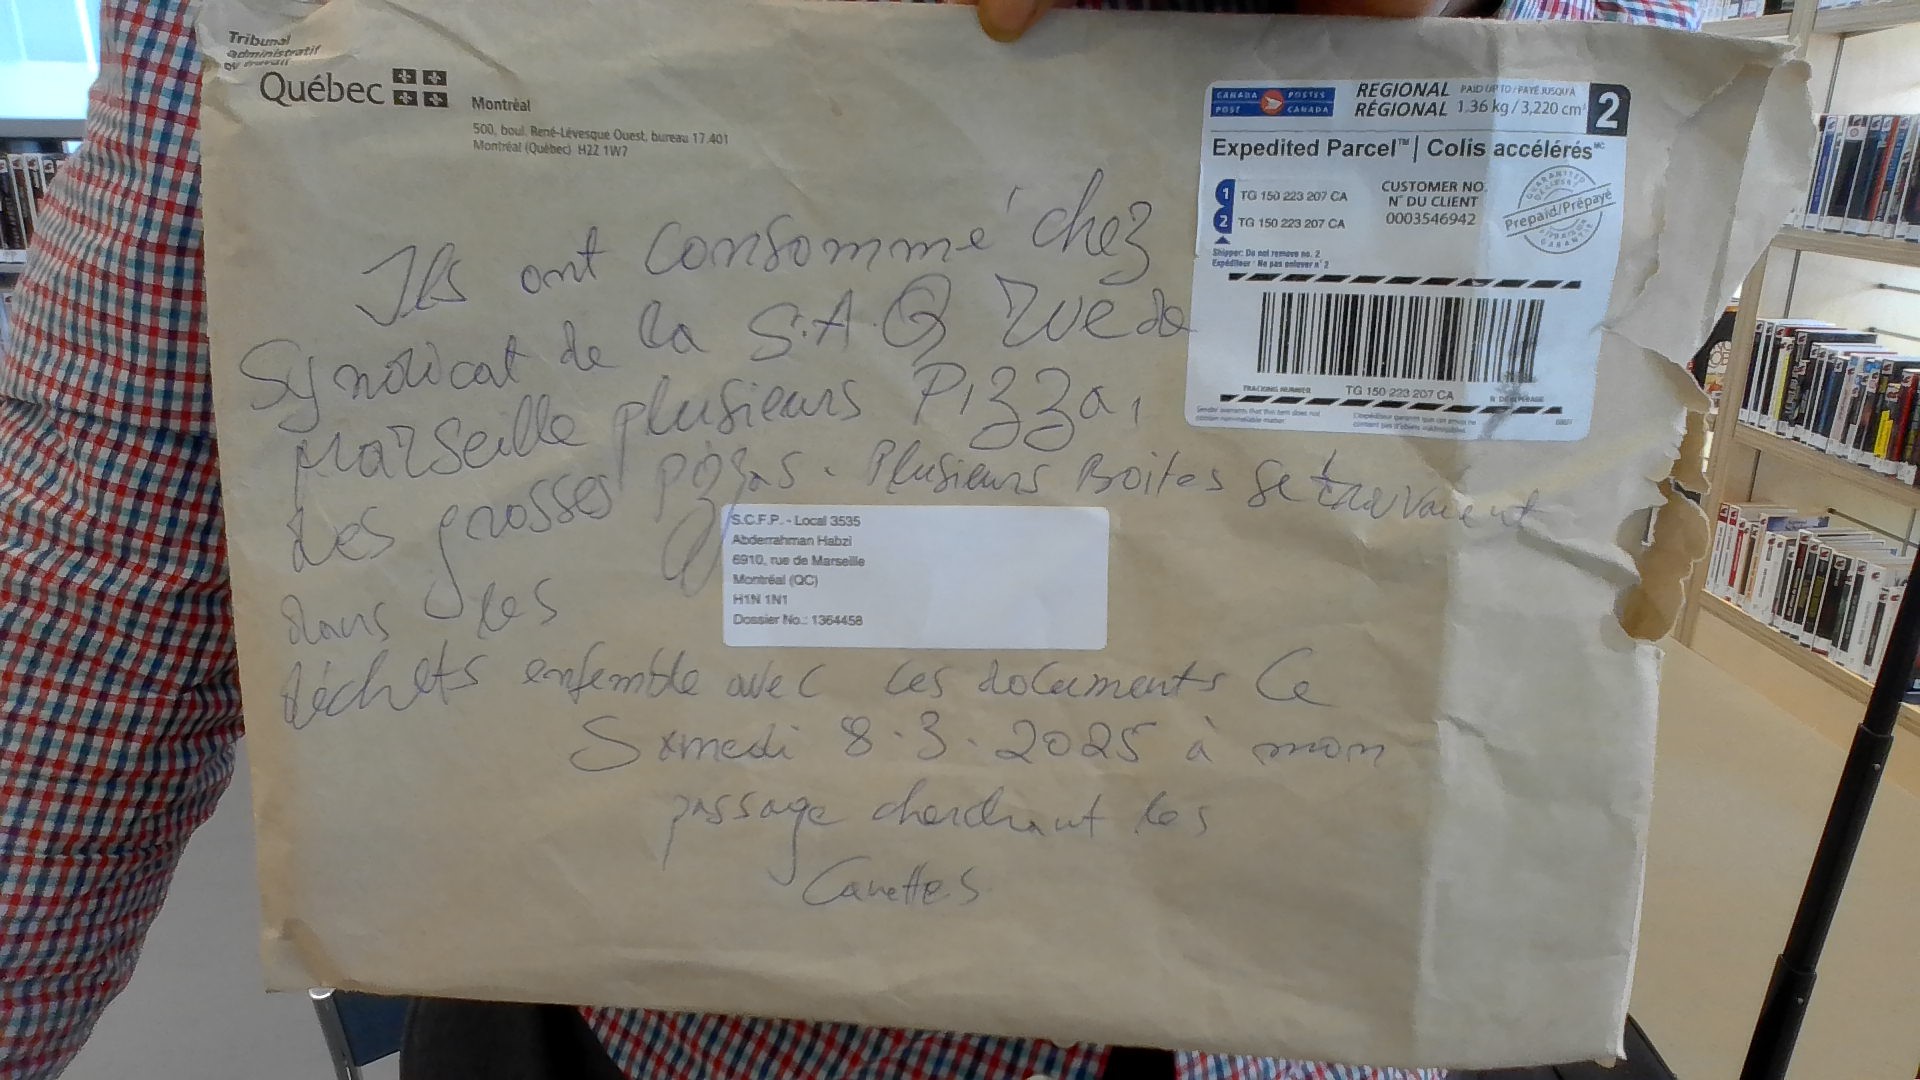 Tribunal
administratif
du travail
Québec
Montréal
500, boul. René-Lévesque Ouest, bureau 17.401
Montréal (Québec) H2Z 1W7
CANADA POSTES
POST CANADA
REGIONAL PAID UP TO / PAYÉ JUSQU'À
RÉGIONAL 1.36 kg / 3,220 cm³
2
Expedited Parcel™ | Colis accélérés MC
1 TG 150 223 207 CA
2 TG 150 223 207 CA
CUSTOMER NO.
N° DU CLIENT
0003546942
Prepaid/Prépayé
Shipper: Do not remove no. 2
Expéditeur : Ne pas enlever n° 2
TRACKING NUMBER TG 150 223 207 CA N° DE REPÉRAGE
Sender warrants that this item does not
contain non-mailable matter.
L'expéditeur garantit que cet envoi ne
contient pas d'objets inadmissibles.
Ils ont consommé chez
Syndicat de la S.A.Q rue de
Marseille plusieurs Pizza,
des grosses pizzas. Plusieurs Boites se trouvaient
dans les
déchets ensemble avec ces documents Ce
Samedi 8.3.2025 à mon
passage cherchant les
Canettes
S.C.F.P. - Local 3535
Abderrahman Habzi
6910, rue de Marseille
Montréal (QC)
H1N 1N1
Dossier No.: 1364458